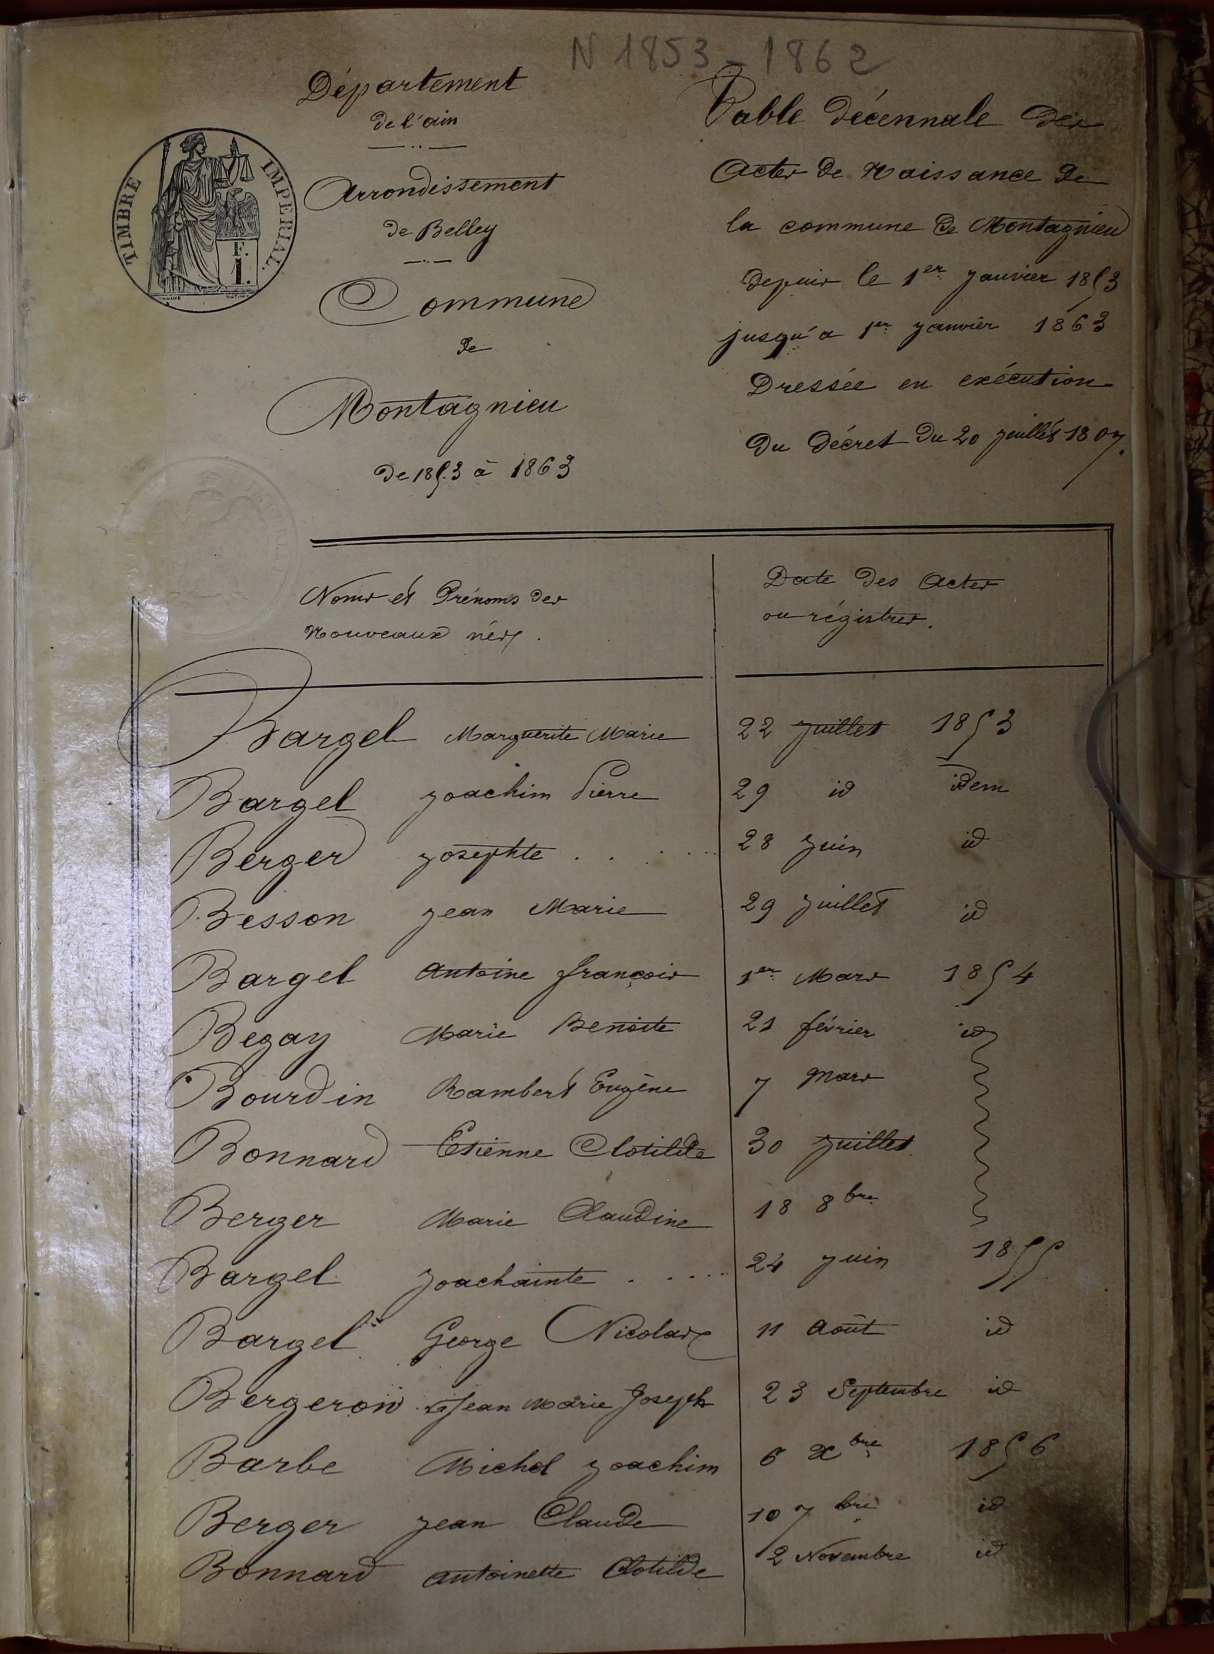 N 1853-1862
Département
de l'ain
Arrondissement
de Belley
Commune
de
Montagnieu
de 1853 à 1863
TIMBRE IMPERIAL.
F.
1.
Table décennale des
Actes de Naissance de
la commune de Montagnieu
depuis le 1er janvier 1853
jusqu'a 1er janvier 1863
Dressée en exécution
du décret du 20 juillet 1807.
Noms et Prénoms des
Nouveaux nés.
Date des Actes
ou régistres.
Bargel Marguerite Marie 22 juillet 1853
Bargel joachim Pierre 29 id idem
Berger josephte . . . . . 28 juin id
Besson jean Marie 29 juillet id
Bargel antoine françois 1er Mars 1854
Begay Marie Benoite 21 février id
Bourdin Rambert Eugène 7 Mars
Bonnard Etienne Clotilde 30 juillet
Berger Marie Claudine 18 8bre
Bargel joachainte . . . . 24 juin 1855
Bargel George Nicolas 11 Août id
Bergeron Jean Marie Joseph 23 Septembre id
Barbe Michel joachim 6 Xbre 1856
Berger jean Claude 10 7bre id
Bonnard antoinette Clotilde 2 Novembre id